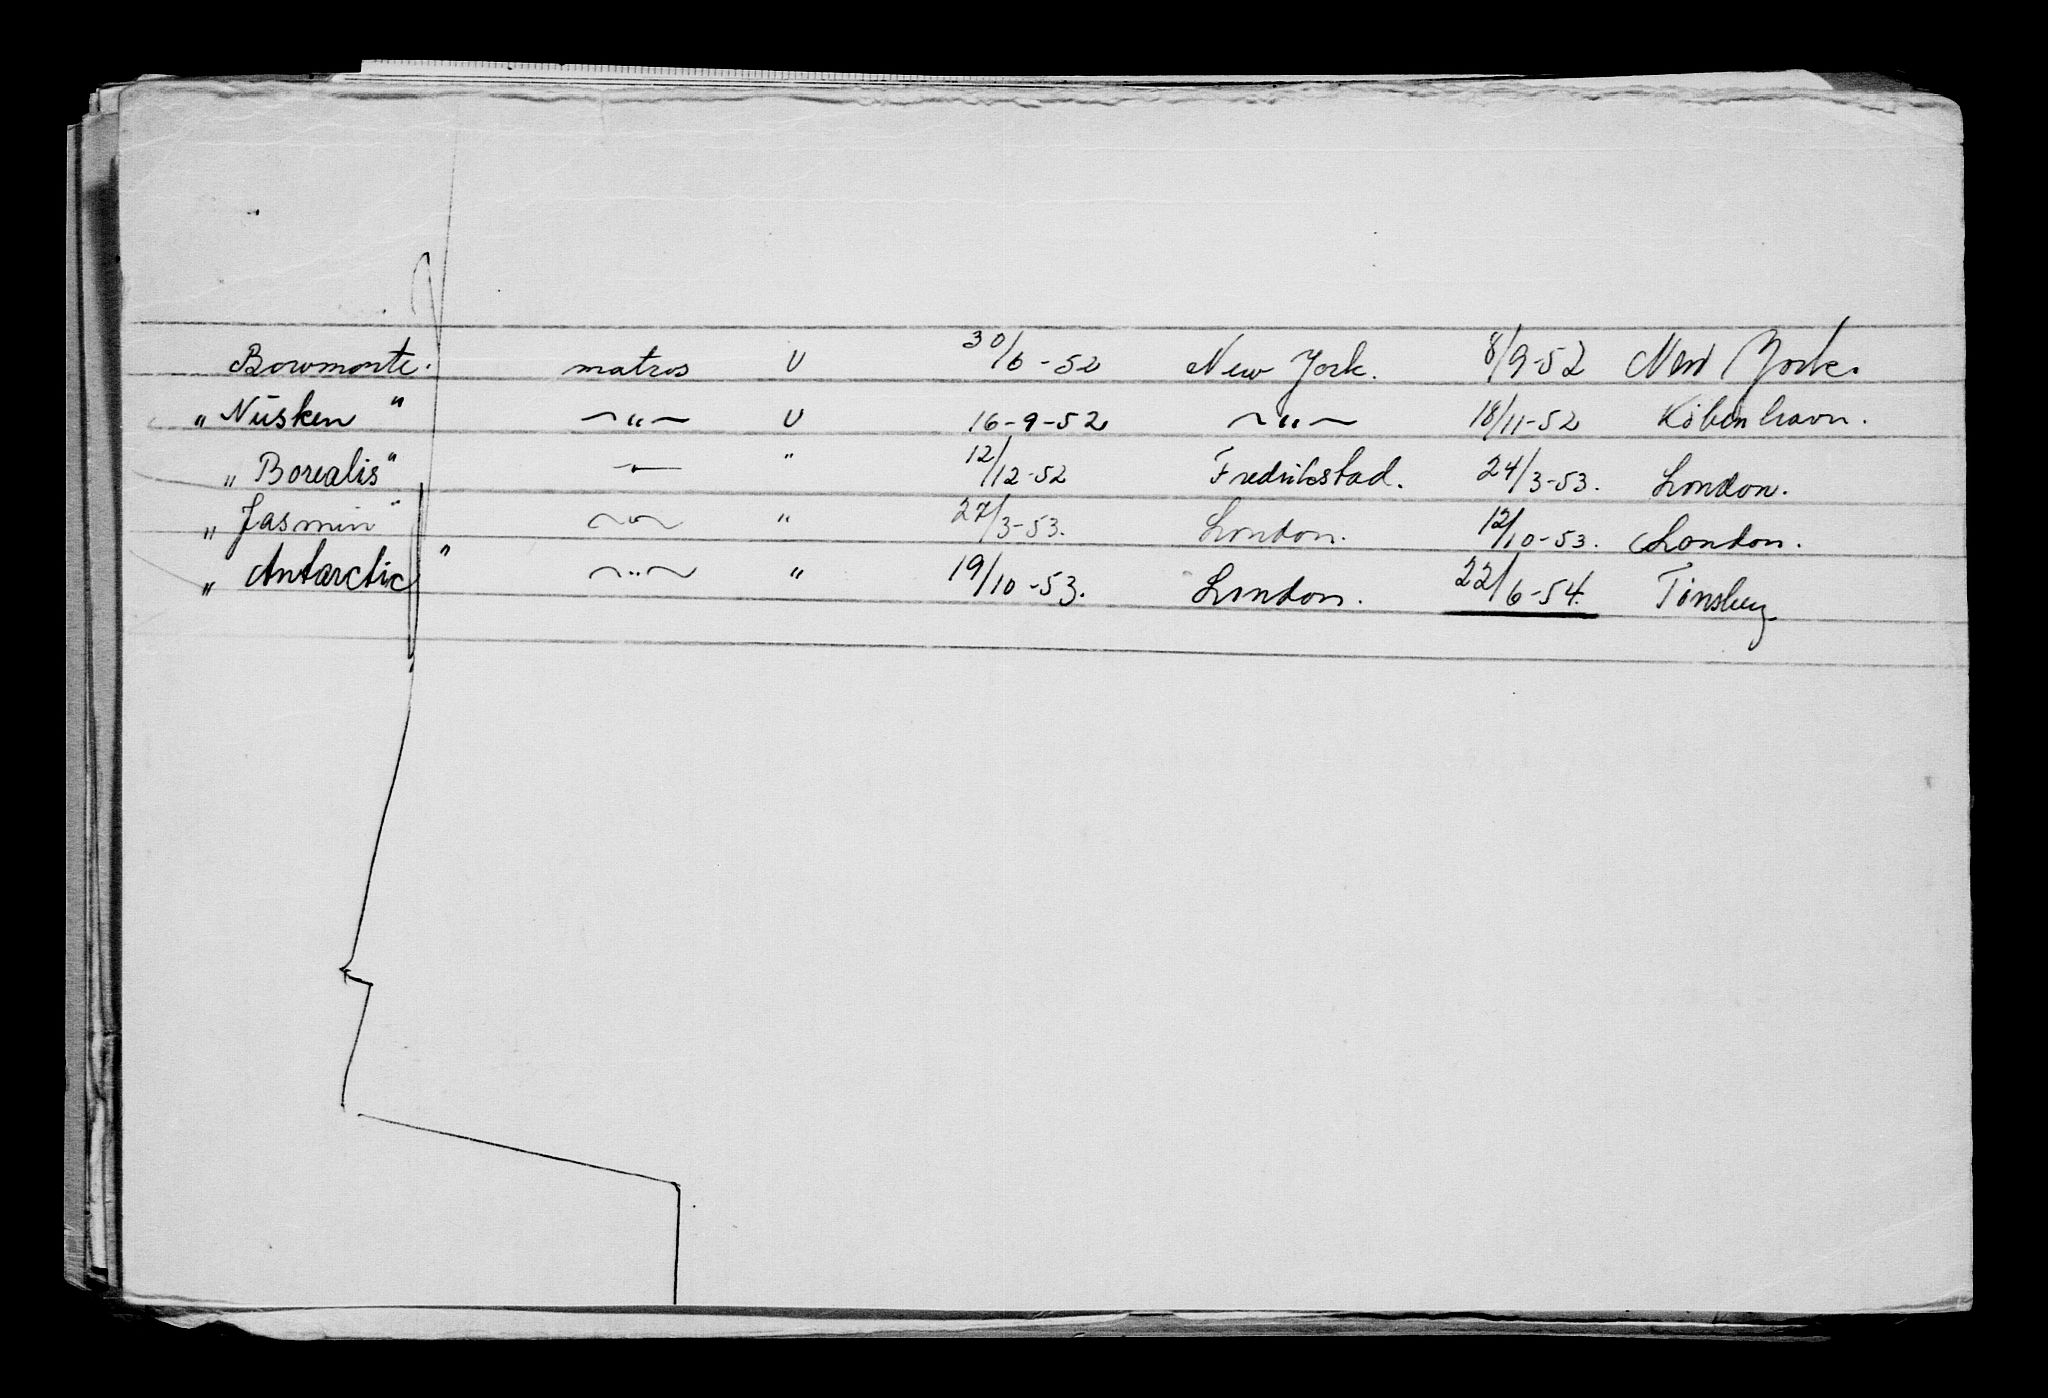 Bowmonte. matros U 30/6-52 New York. 8/9-52 New York.
"Nüsken" -"- U 16-9-52 -"- 18/11-52 København.
"Borealis" -"- " 12/12-52 Fredrikstad. 24/3-53. London.
"Jasmin" -"- " 27/3-53. London. 12/10-53. London.
"Antarctic" -"- " 19/10-53. London. 22/6-54. Tønsberg